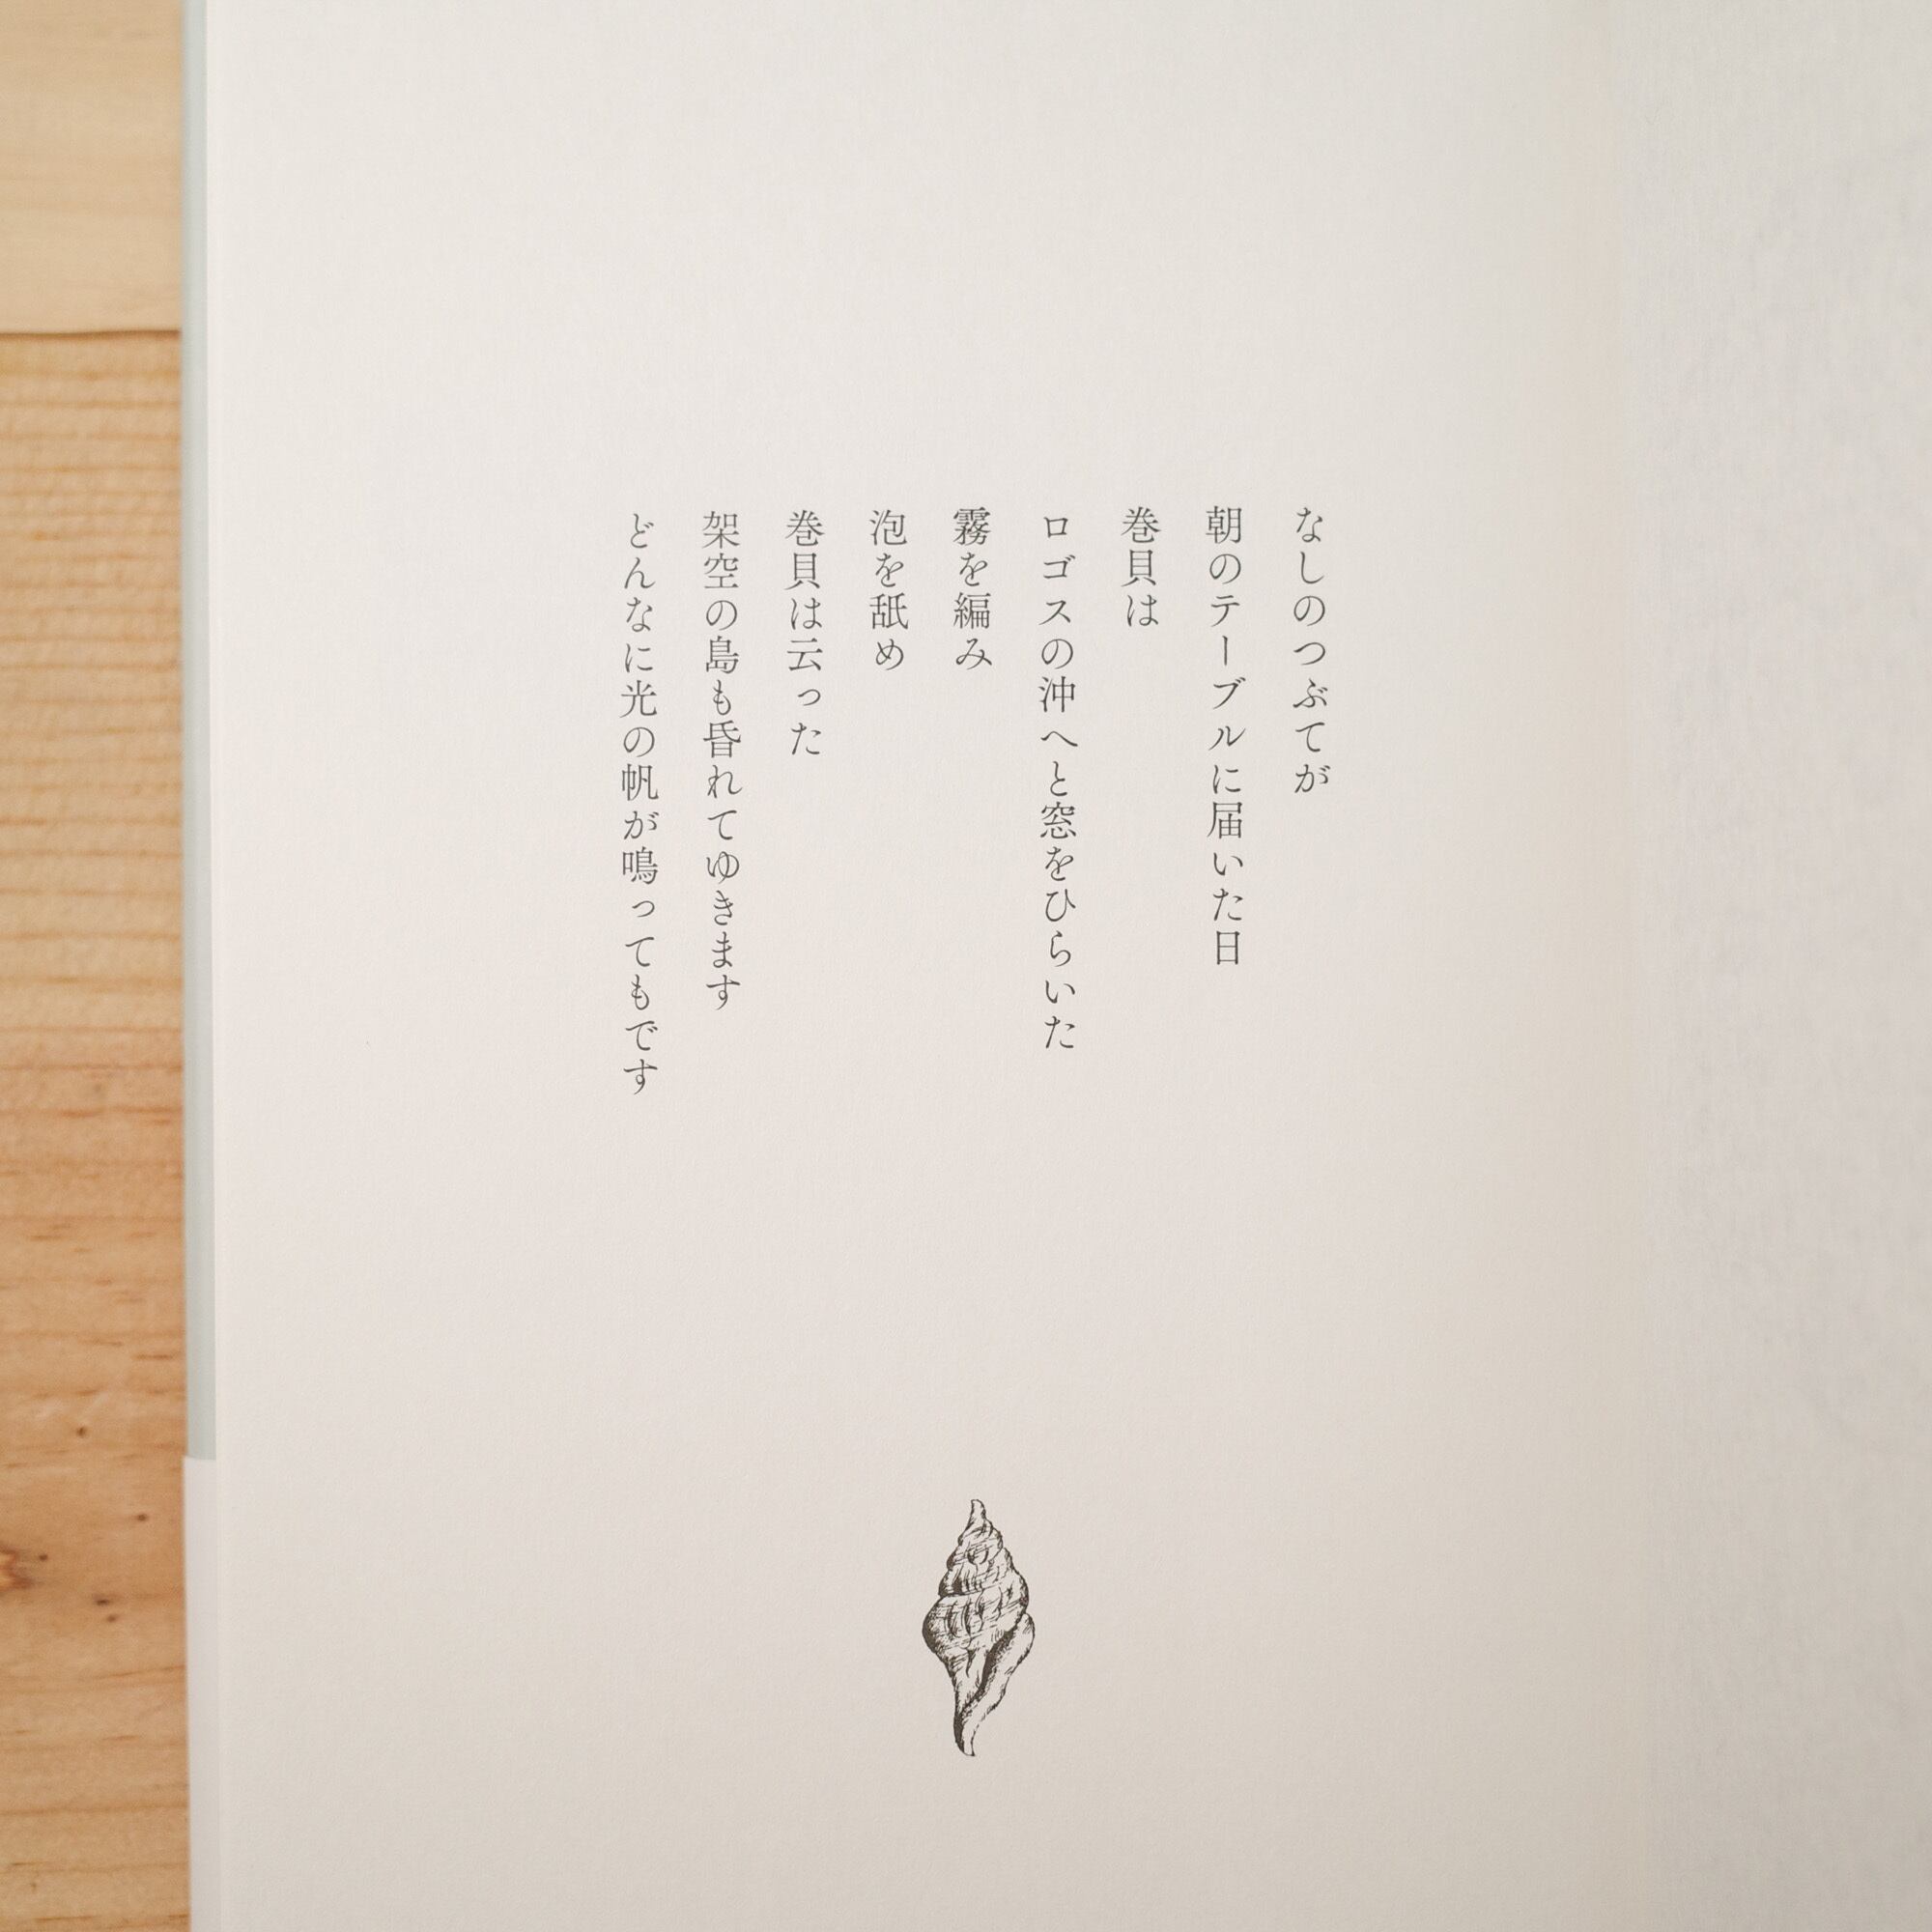 なしのつぶてが
朝のテーブルに届いた日
巻貝は
ロゴスの沖へと窓をひらいた
霧を編み
泡を舐め
巻貝は云った
架空の島も昏れてゆきます
どんなに光の帆が鳴ってもです